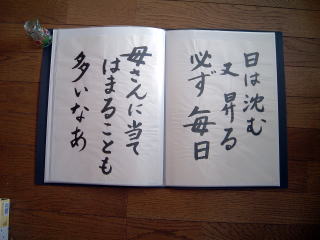 日は沈む
又昇る
必ず毎日
母さんに当て
はまることも
多いなあ